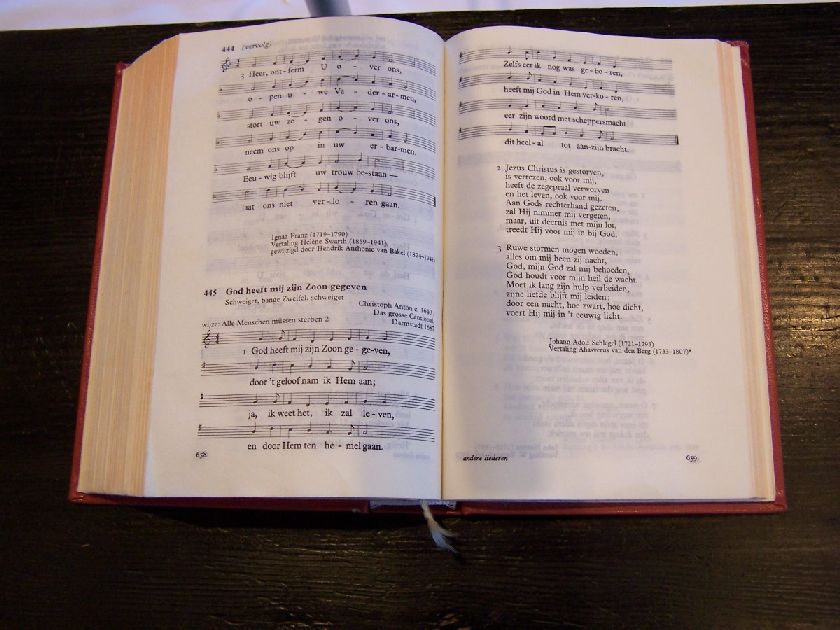 444 (vervolg)
3 Heer, ont-ferm U o - ver ons,
o - pen u - we Va - der-ar-men,
stort uw ze - gen o - ver ons,
neem ons op in uw er - bar-men.
Eeu-wig blijft uw trouw be-staan —
laat ons niet ver-lo - ren gaan.
Ignaz Franz (1719-1790)
Vertaling Hélène Swarth (1859-1941),
gewijzigd door Hendrik Anthonie van Bakel
445 God heeft mij zijn Zoon gegeven
Schweiget, bange Zweifel, schweiget
Christoph Anton
Das grosse Cantional
Darmstadt 1687
wijze: Alle Menschen müssen sterben 2
1 God heeft mij zijn Zoon ge - ge-ven,
door 't geloof nam ik Hem aan;
ja, ik weet het, ik zal le-ven,
en door Hem ten he - mel gaan.
658
Zelfs eer ik nog was ge-bo-ren,
heeft mij God in Hem verko-ren,
eer zijn woord met scheppersmacht
dit heel-al tot aan-zijn bracht.
2 Jezus Christus is gestorven,
is verrezen, ook voor mij,
heeft de zegepraal verworven
en het leven, ook voor mij.
Aan Gods rechterhand gezeten,
zal Hij nimmer mij vergeten,
maar, uit deernis met mijn lot,
treedt Hij voor mij in bij God.
3 Ruwe stormen mogen woeden,
alles om mij heen zij nacht,
God, mijn God zal mij behoeden,
God houdt voor mijn heil de wacht.
Moet ik lang zijn hulp verbeiden,
zijne liefde blijft mij leiden:
door een nacht, hoe zwart, hoe dicht,
voert Hij mij in 't eeuwig licht.
Johann Adolf Schlegel (1721-1793)
Vertaling Ahasverus van den Berg (1733-1807)*
andere liederen
659